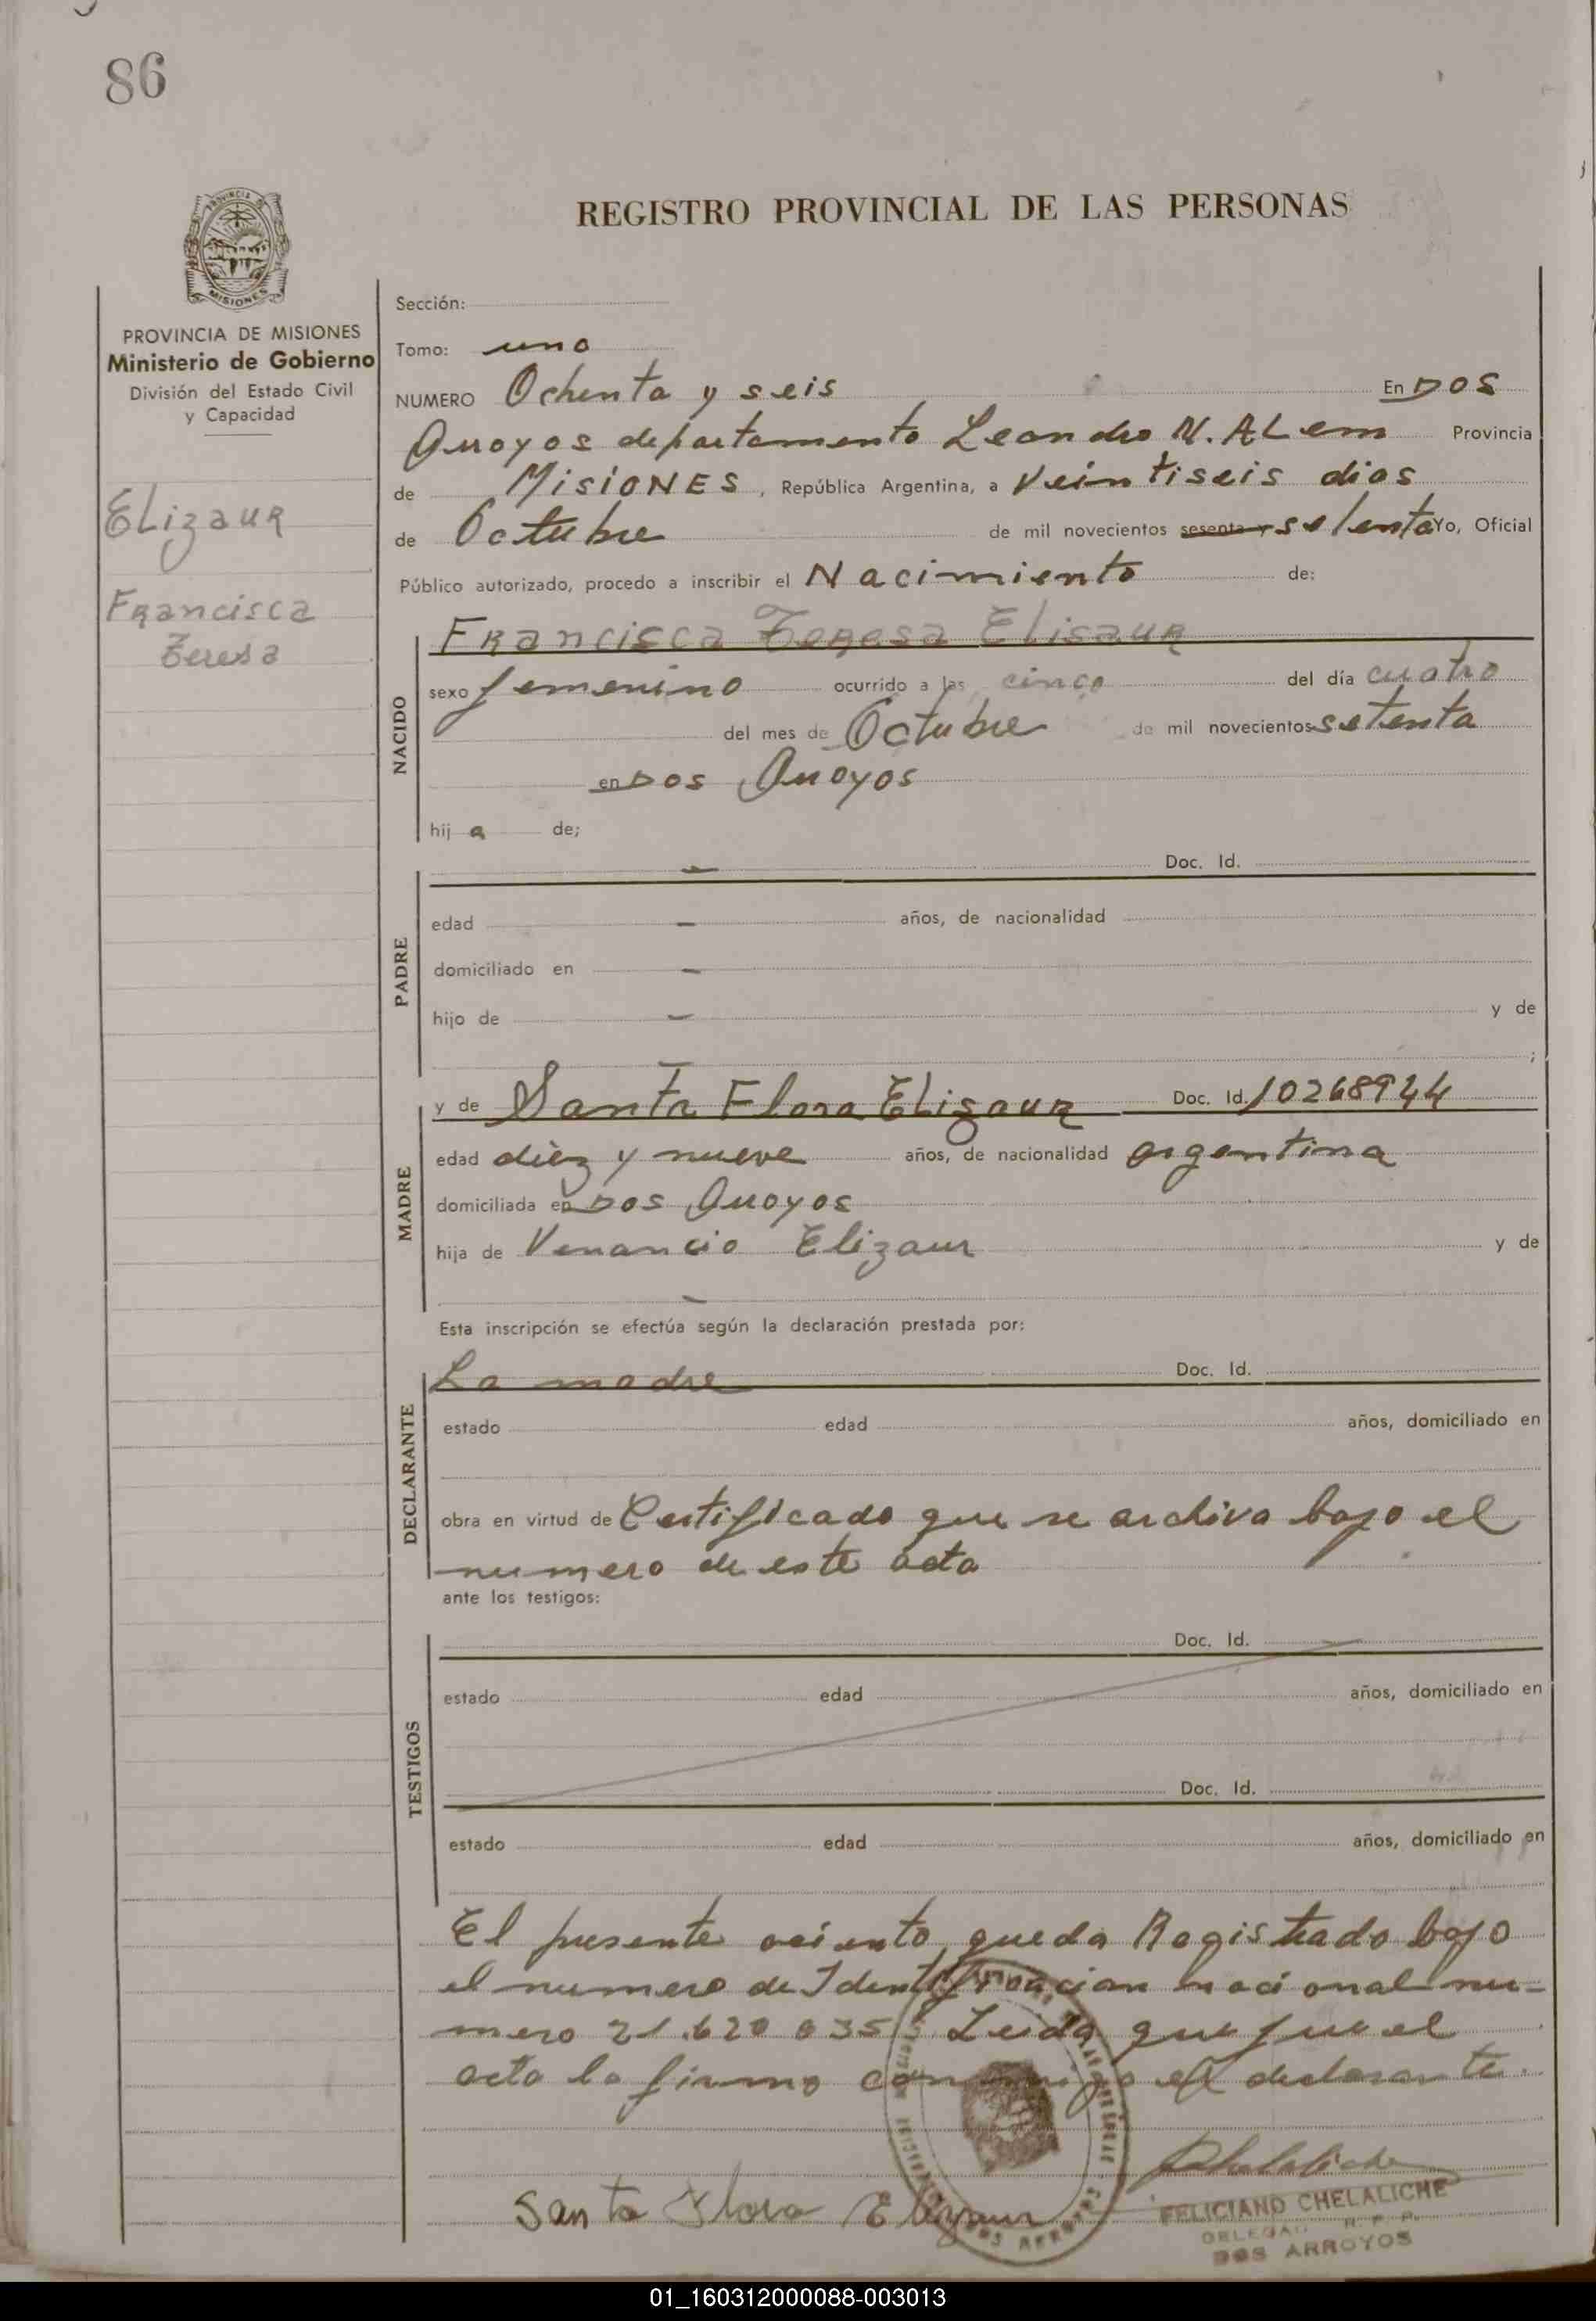 86
PROVINCIA
MISIONES
REGISTRO PROVINCIAL DE LAS PERSONAS
PROVINCIA DE MISIONES
Ministerio de Gobierno
División del Estado Civil
y Capacidad
Elizaur
Francisca
Teresa
Sección:
Tomo: uno
NUMERO Ochenta y seis En DOS
Arroyos departamento Leandro N. ALem Provincia
de MisiONES, República Argentina, a veintiseis dias
de Octubre de mil novecientos sesenta y setenta Yo, Oficial
Público autorizado, procedo a inscribir el Nacimiento de:
NACIDO
Francisca Teresa Elisaur
sexo femenino ocurrido a las cinco del día cuatro
del mes de Octubre de mil novecientos setenta
en DOS Arroyos
hij a de;
PADRE
Doc. Id.
edad años, de nacionalidad
domiciliado en
hijo de y de
;
MADRE
y de Santa Flora Elizaur Doc. Id. 10268944
edad diez y nueve años, de nacionalidad argentina
domiciliada en DOS Arroyos
hija de Venancio Elizaur y de
Esta inscripción se efectúa según la declaración prestada por:
DECLARANTE
La madre Doc. Id.
estado edad años, domiciliado en
obra en virtud de Certificado que se archiva bajo el
numero de este acta
ante los testigos:
TESTIGOS
Doc. Id.
estado edad años, domiciliado en
Doc. Id.
estado edad años, domiciliado en
El presente aciento, queda Registrado bajo
el numero de Identificacion nacional nu-
mero 21.620 035 Leida que fue el
acta la firma conmigo el declarante.
Santa Flora Elizaur
FELICIANO CHELALICHE
DELEGADO R. P. P.
DOS ARROYOS
01_160312000088-003013